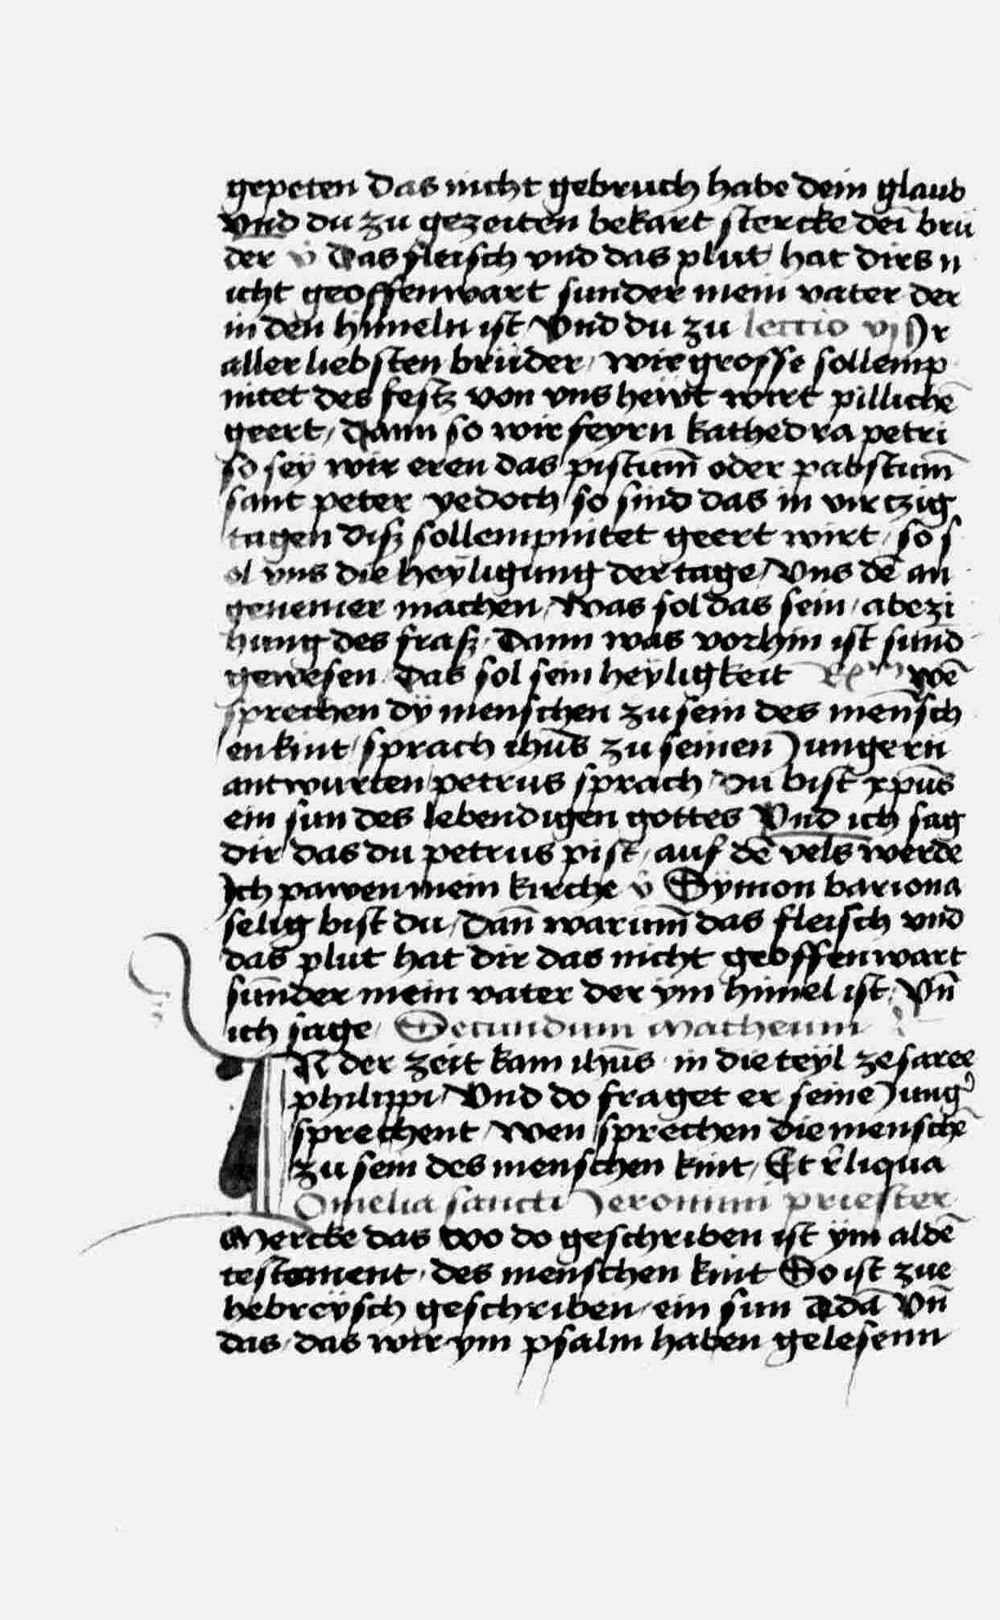 gepeten das nicht gebruch habe dein glaub
Vnd du zu gezeiten bekart stercke dei brü
der v̇ Das fleisch vnd das plut hat dirs n
icht geoffenwart sunder mein vater der
in den himeln ist / Vnd du zu lectio vj Ir
aller liebsten brüder / wie grosse sollemp
nitet des festz von vns hewt wirt pillichē
geert / dann so wir feyrn kathedra petri
so sey wir eren das pistum̄ oder pabstum̄
sant peter yedoch so sind das in virtzig
tagen disz sollempnitet geert wirt / so s
ol vns die heyligung der tage / Vns dē an
genemer machen / Was sol das sein / abezi
hung des frasz / Dann was vorhin ist sund
gewesen / das sol sein heyligkeit wē
sprechen dÿ menschen zu sein des mensch
en kint / sprach ihūs zu seinen Jungern
antwurten petrus sprach / du bist xp̄us
ein sun des lebendigen gottes Vnd ich sag
dir das du petrus pist / auf dē vels werde
Ich pawen mein kirche v̇ Symon bariona
selig bist du / Dan̄ warum̄ das fleisch vnd
das plut hat dir das nicht geoffenwart
sunder mein vater der ym himel ist / Vn̄
ich sage / Secundum Matheum
IN der zeit kam ihūs in die teyl zesaree
philippi / Vnd do fraget er seine Jungᵉ
sprechent / wen sprechen die menschē
zu sein des menschen kint / Et r̄liqua
Omelia sancti Jeronimi priester
Mercke das wo do geschriben ist ym aldē
testament / des menschen kint So ist zue
hebreysch geschriben / ein sun Adā Vn̄
das / das wir ym psalm haben gelesenn